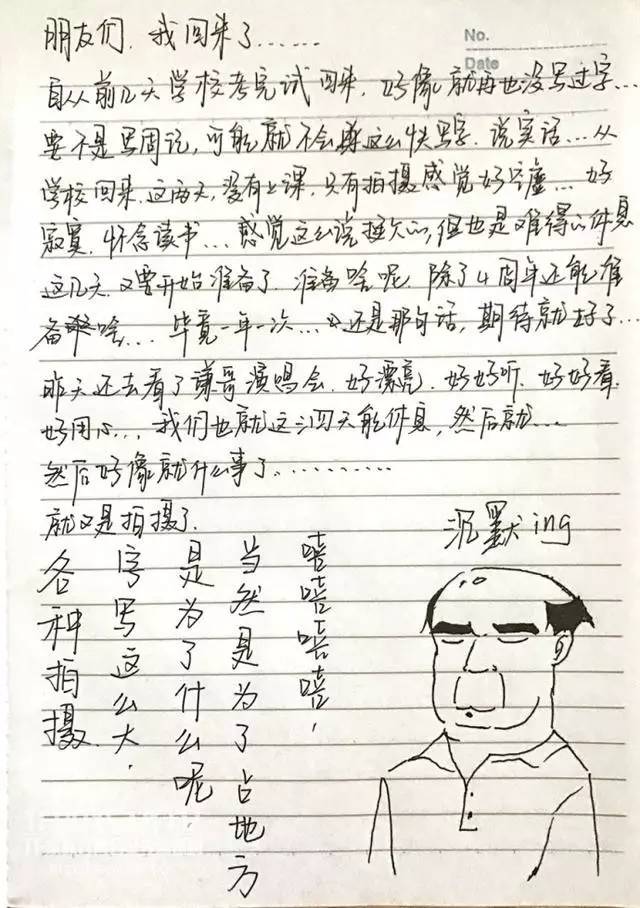 No.
Date
朋友们，我回来了……
自从前几天学校考完试回来，好像就再也没写过字…
要不是写周记，可能就不会这么快写字，说实话…从
学校回来，这两天，没有上课，只有拍摄感觉好空虚…好
寂寞，怀念读书…感觉这么说挺欠的，但也是难得的休息
这几天又要开始准备了，准备啥呢，除了4周年还能准
备啥…毕竟一年一次…还是那句话，期待就好了…
昨天还去看了谦哥演唱会，好漂亮，好好听，好好看，
好用心…我们也就这三四天能休息，然后就…
然后好像就什么事了………
就又是拍摄了.
沉默ing
嘻嘻嘻嘻，
当然是为了占地方
是为了什么呢，
字写这么大，
各种拍摄